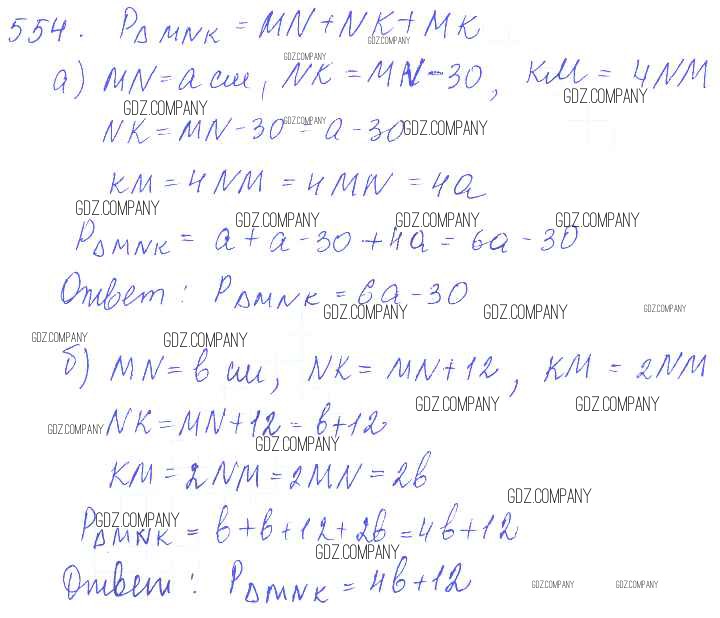 554. P△MNK = MN + NK + MK
GDZ.COMPANY
GDZ.COMPANY
а) MN = a см, NK = MN - 30, KM = 4NM
GDZ.COMPANY GDZ.COMPANY
GDZ.COMPANY GDZ.COMPANY
NK = MN - 30 = a - 30
KM = 4NM = 4MN = 4a
GDZ.COMPANY
GDZ.COMPANY GDZ.COMPANY GDZ.COMPANY
P△MNK = a + a - 30 + 4a = 6a - 30
Ответ: P△MNK = 6a - 30
GDZ.COMPANY GDZ.COMPANY GDZ.COMPANY
GDZ.COMPANY GDZ.COMPANY
б) MN = b см, NK = MN + 12, KM = 2NM
GDZ.COMPANY GDZ.COMPANY
GDZ.COMPANY NK = MN + 12 = b + 12
GDZ.COMPANY
KM = 2NM = 2MN = 2b
GDZ.COMPANY
GDZ.COMPANY
P△MNK = b + b + 12 + 2b = 4b + 12
GDZ.COMPANY
Ответ: P△MNK = 4b + 12
GDZ.COMPANY GDZ.COMPANY